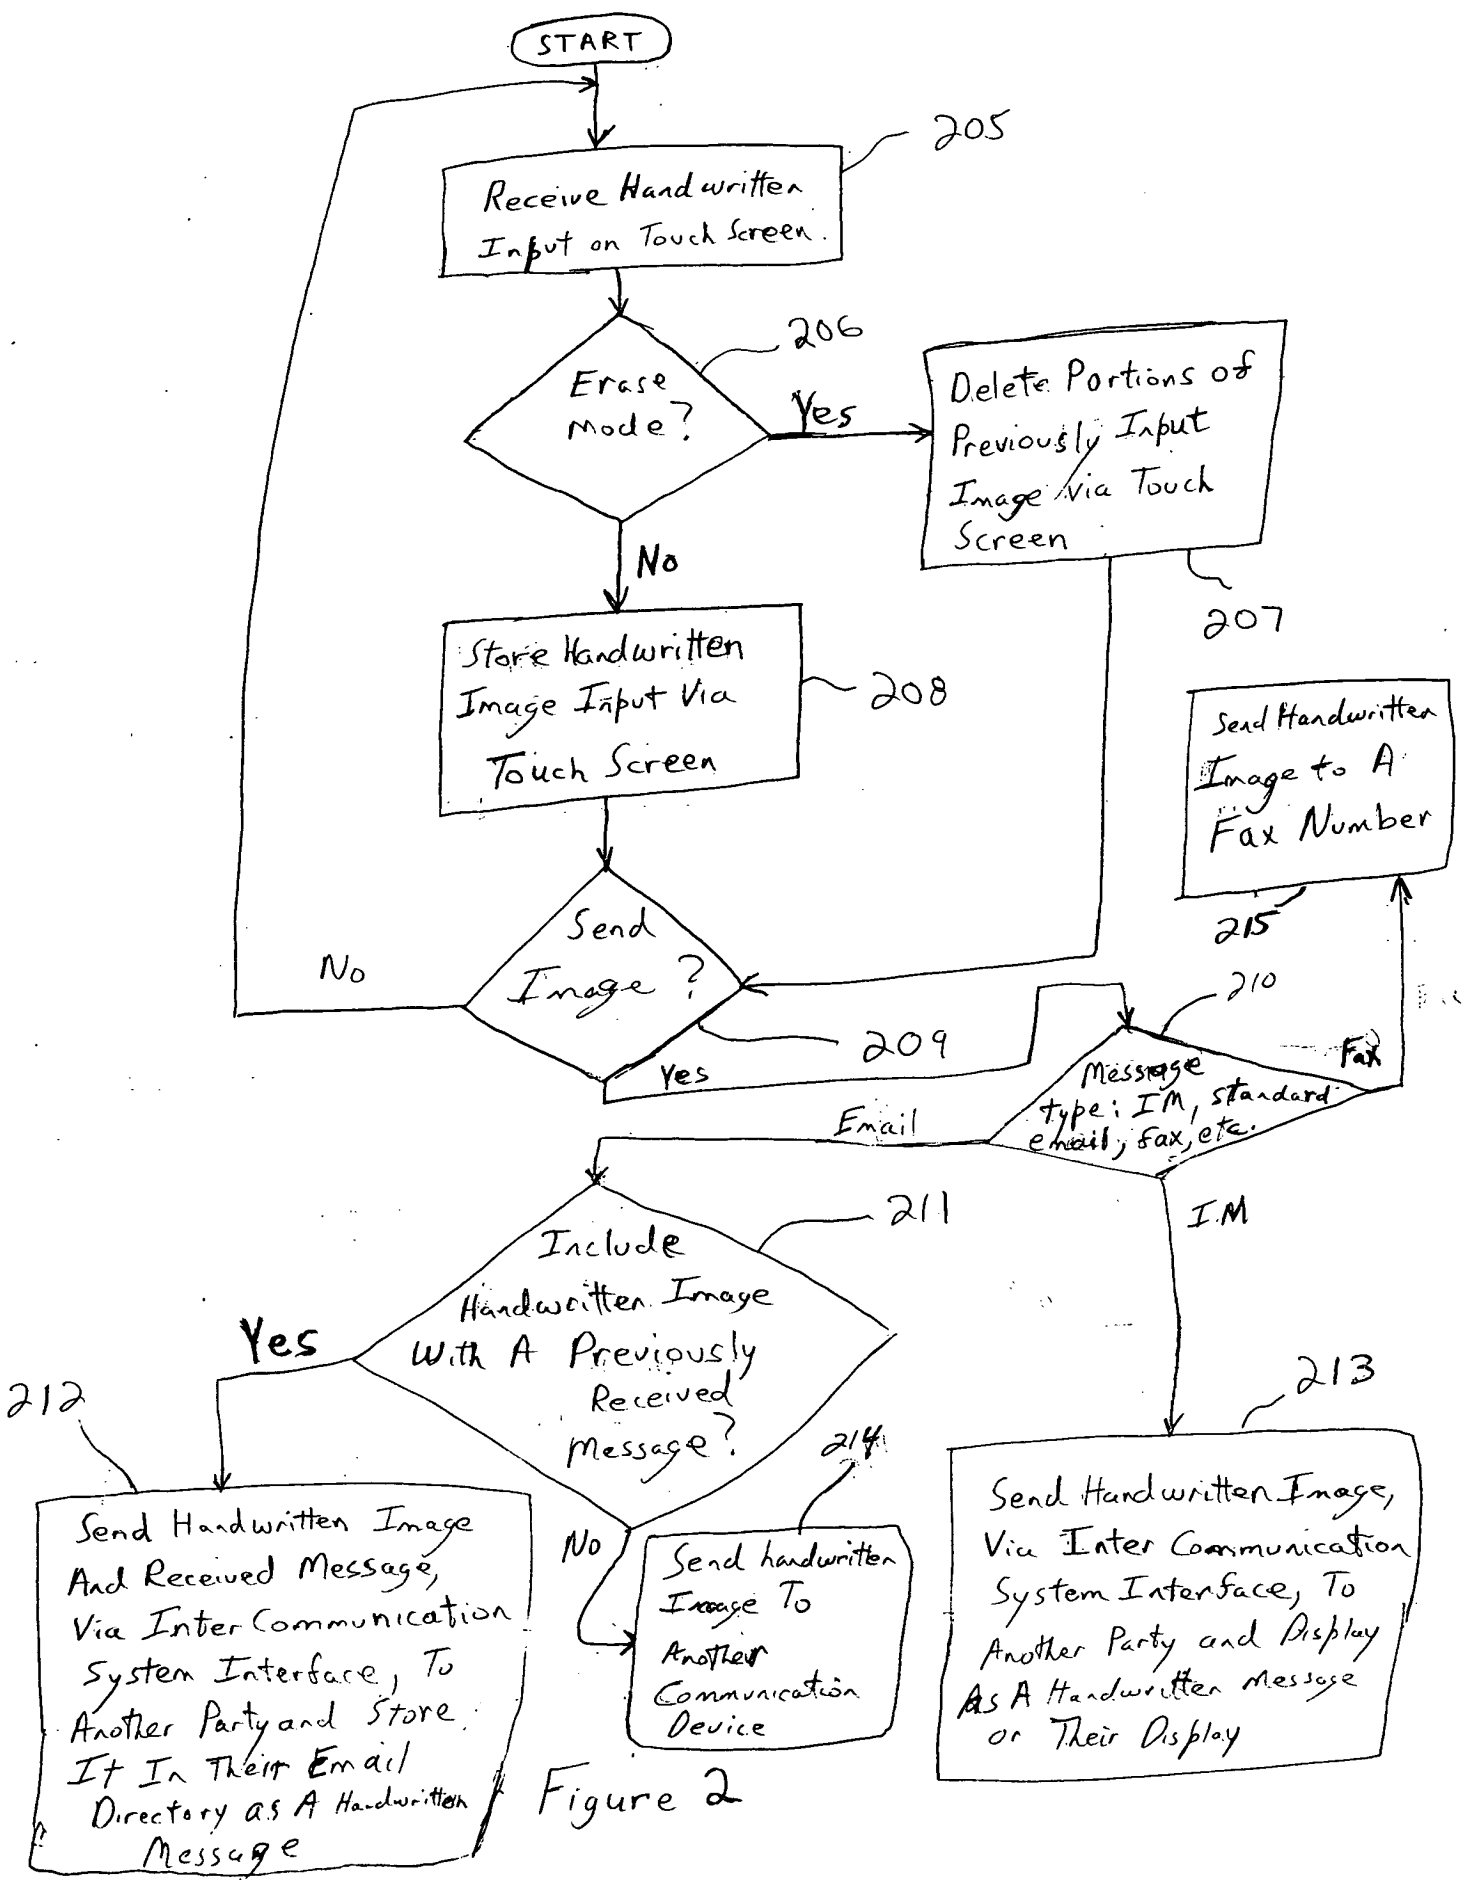 START
205
Receive Handwritten
Input on Touch Screen.
206
Erase
Mode?
Yes
Delete Portions of
Previously Input
Image via Touch
Screen
207
No
Store Handwritten
Image Input Via
Touch Screen
208
Send Handwritten
Image to A
Fax Number
215
Send
Image?
No
209
Yes
210
Message
type: IM, standard
email, fax, etc.
Fax
Email
I.M
211
Include
Handwritten Image
With A Previously
Received
Message?
Yes
212
Send Handwritten Image
And Received Message,
Via Inter Communication
System Interface, To
Another Party and Store
It In Their Email
Directory as A Handwritten
Message
No
214
Send handwritten
Image To
Another
Communication
Device
213
Send Handwritten Image,
Via Inter Communication
System Interface, To
Another Party and Display
As A Handwritten Message
or Their Display
Figure 2